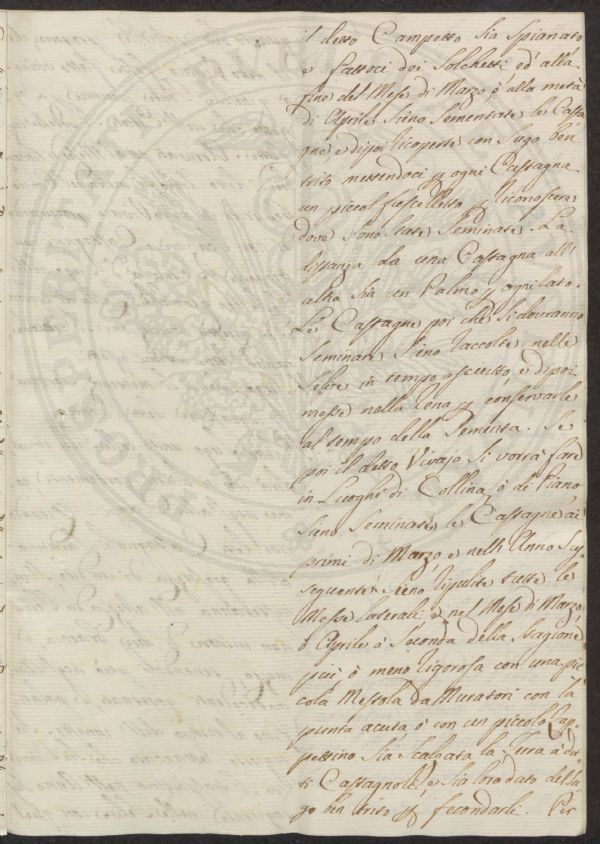 il detto Campetto sia spianato
e fattoci dei Solchetti ed alla
fine del Mese di Marzo, ò alla metà
di Aprile sieno Sementate le Casta
gne, e dipoi ricoperte con Sugo ben
trito mettendoci p ogni Castagna
un piccol fuscelletto p riconoscere
dove sono state Seminate. La
distanza da una Castagna all'
altra sia un Palmo p ogni lato.
Le Castagne poi che si dovranno
Seminare sieno raccolte nelle
Selve in tempo asciutto, e dipoi
messe nella Rena p conservarle
al tempo della Sementa. Se
poi il detto Vivajo si vorrà fare
in Luoghi di Collina, ò di Piano
sieno Seminate le Castagne ai
primi di Marzo e nell'Anno Sus
seguente sieno ripulite tutte le
Messe laterali e nel Mese di Marzo,
ò Aprile à Seconda della Stagione
più, ò meno rigorosa con una pic
cola Mestola da Muratori con la
punta acuta ò con un piccolo Zap
pettino sia scalzata la Terra à det
ti Castagnoli, e sia loro dato del Su
go ben trito p fecondarli. Per